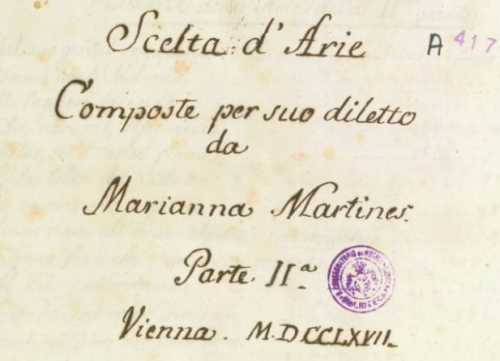 Scelta d'Arie
A 417
Composte per suo diletto
da
Marianna Martines.
Parte IIª
Vienna. M.DCCLXVII.